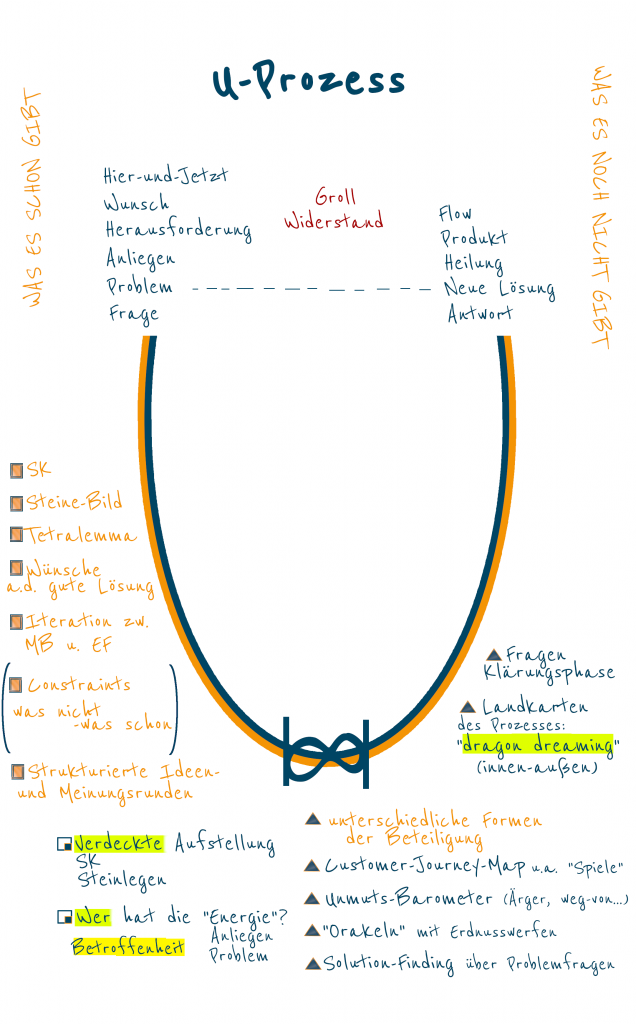 U-Prozess
WAS ES SCHON GIBT
WAS ES NOCH NICHT GIBT
Hier-und-Jetzt
Wunsch
Herausforderung
Anliegen
Problem
Frage
Groll
Widerstand
Flow
Produkt
Heilung
Neue Lösung
Antwort
SK
Steine-Bild
Tetralemma
Wünsche
a.d. gute Lösung
Iteration zw.
MB u. EF
Constraints
was nicht
-was schon
Strukturierte Ideen-
und Meinungsrunden
Fragen
Klärungsphase
Landkarten
des Prozesses:
"dragon dreaming"
(innen-außen)
Verdeckte Aufstellung
SK
Steinlegen
Wer hat die "Energie"?
Betroffenheit
Anliegen
Problem
unterschiedliche Formen
der Beteiligung
Customer-Journey-Map u.a. "Spiele"
Unmuts-Barometer (Ärger, weg-von...)
"Orakeln" mit Erdnusswerfen
Solution-Finding über Problemfragen